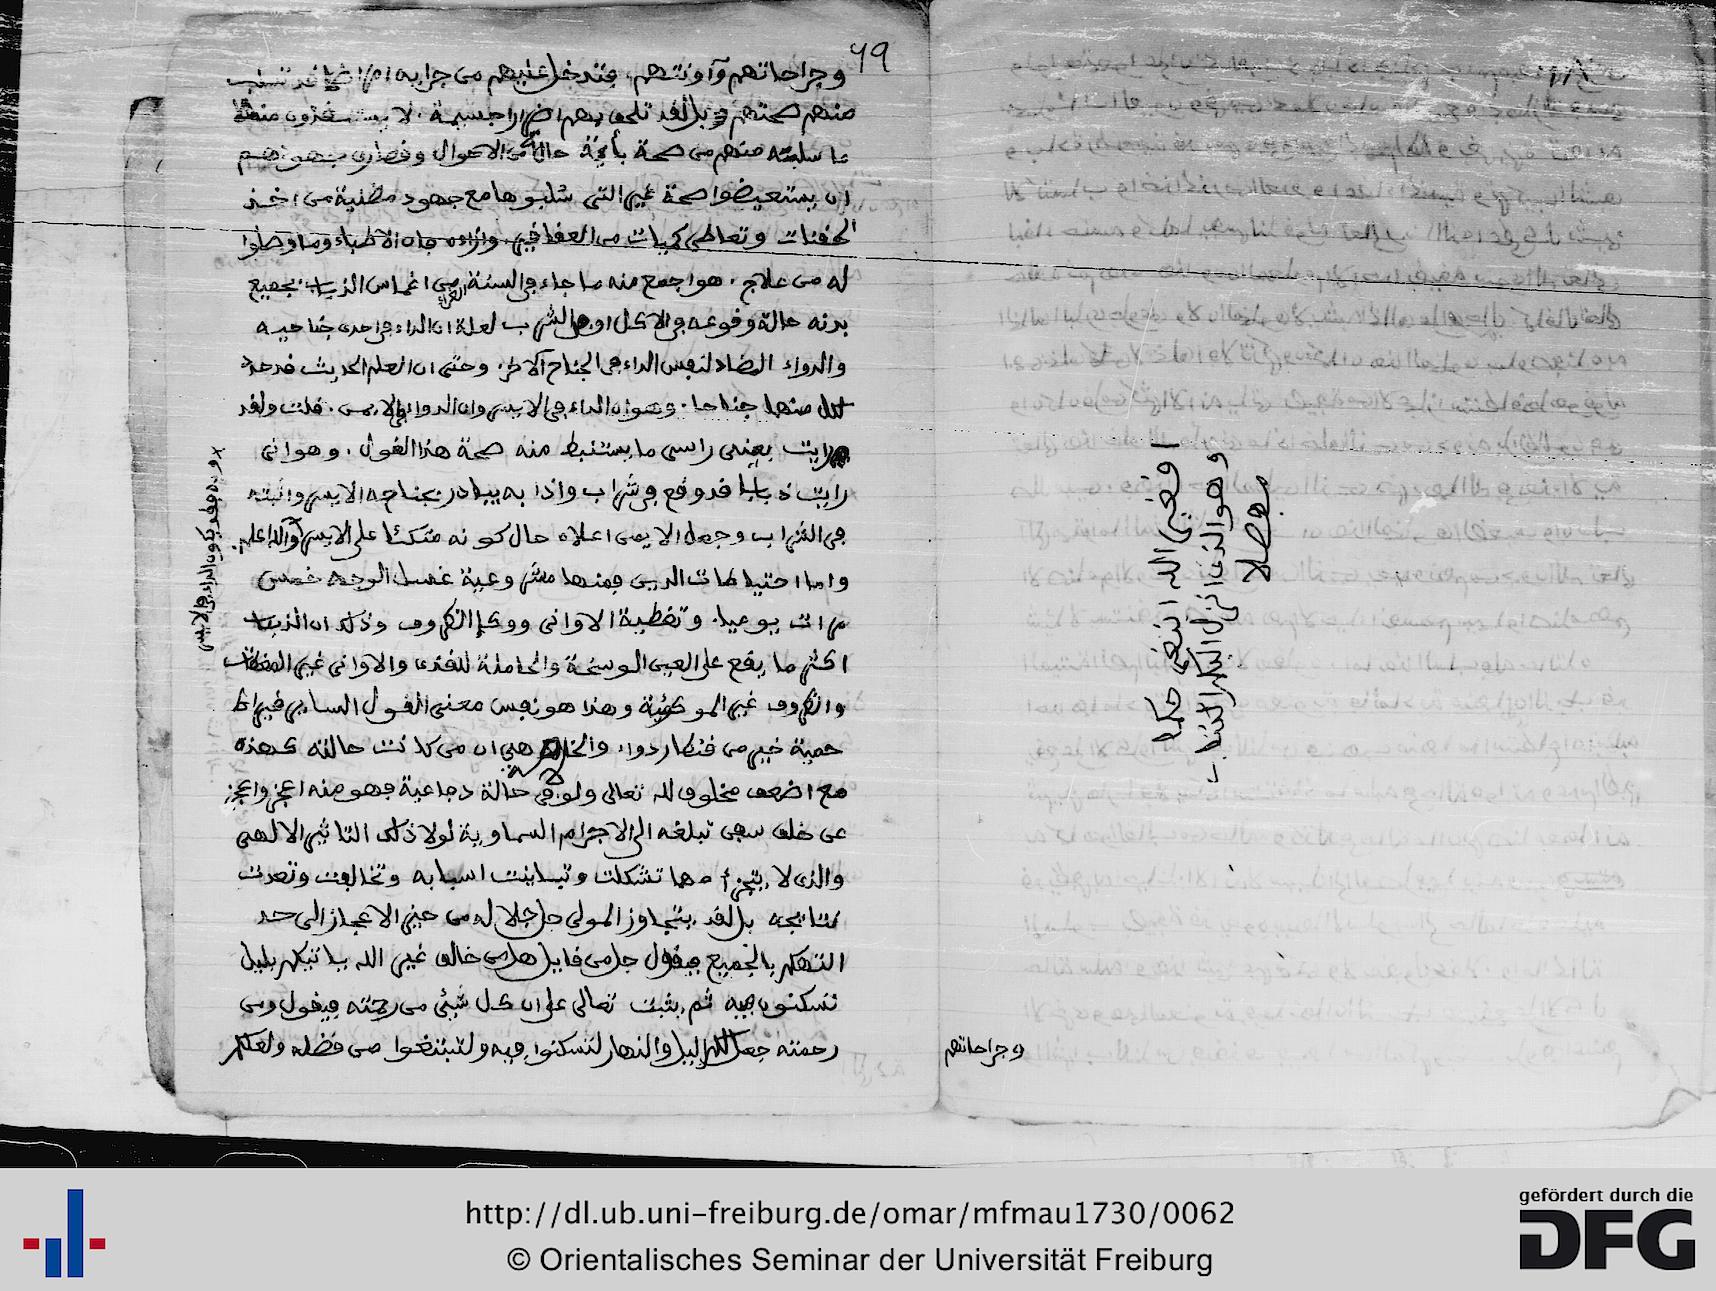 افغير الله ابتغى حكما
وهو الذى انزل اليكم الكتاب
مفصلا
وجراحاتهم
69
وجراحاتهم وآونتهم، فتدخل عليهم من جرايه امراضا قد تسلب
منهم صحتهم بل لقد تلحق بهم اضرارا جسيمة. لا يستنقذون منها
ما سلبته منهم من صحة بأية حالة من الاحوال وقصارى جهودهم
ان يستعيضوا صحة غير التى سلبوها مع جهود مضنية من اخذ
الحقنات وتعاطى كميات من العقاقير. وازاءه جاء الاطباء وما وصلوا
له من علاج. هو اجمع منه ما جاء فى السنة الغراء من اغماس الذباب بجميع
بدنه حالة وقوعه فى الاكل او فى الشراب لعلة ان الداء فى احدى جناحيه
والدواء المضاد لنفس الداء فى الجناح الآخر. وحتى ان العلم الحديث قد حدد
لكل منهما جناحا. وهو ان الداء فى الايسر وان الدواء فى الايمن. قلت ولقد
رايت بعينى راسى ما يستنبط منه صحة هذا القول. وهو انى
رايت ذبابا قد وقع فى شراب واذا به يبادر بجناحه الايسر واثبته
فى الشراب وجعل الايمن اعلاه حال كونه متكئا على الايسر والله اعلم.
واما احتياطات الدين فمنها مشروعية غسل الوجه خمس
مرات يوميا. وتغطية الاوانى ووكإ الظروف وذلك ان الذباب
اكثر ما يقع على العين الوسخة والحاملة للقذى والاوانى غير المغطات
والظروف غير الموكئة وهذا هو نفس معنى القول السابق قيراط
حمية خير من قنطار دواء والخلاصة هي ان من كانت حالته كهذه
مع اضعف مخلوق لله تعالى ولو فى حالة دجاعية فهو منه اعجز واعجز
عن خلق سفن تبلغه الى الاجرام السماوية لولا ذلك التاثير الالهى
والذى لا يتجزأ مهما تشكلت وتباينت اسبابه وتخالفت وتعددت
نتائجه بل لقد يتجاوز المولى جل جلاله من حيز الاعجاز الى حد
التهكم بالجميع فيقول جل من قايل هل من خالق غير الله ياتيكم بليل
تسكنون فيه ثم يثبت تعالى على ان كل شيئ من رحمته فيقول ومن
رحمته جعل لكم الليل والنهار لتسكنوا فيه ولتبتغوا من فضله ولعلكم
وقد يكون الداء فى الايسر
http://dl.ub.uni-freiburg.de/omar/mfmau1730/0062
© Orientalisches Seminar der Universität Freiburg
gefördert durch die
DFG